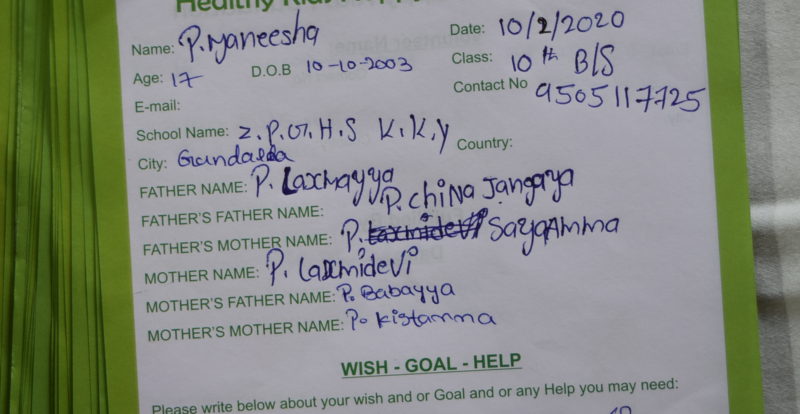 Healthy Kids
Name: P. Maneesha Date: 10/2/2020
Age: 17 D.O.B 10-10-2003 Class: 10th B/S
E-mail: Contact No 9505117725
School Name: Z.P.G.H.S K.K,Y Country:
City:
FATHER NAME: P. Laxmayya
FATHER'S FATHER NAME: P. China Jangaya
FATHER'S MOTHER NAME: P. Laxmidevi SayaAmma
MOTHER NAME: P. Laxmidevi
MOTHER'S FATHER NAME: P. Babayya
MOTHER'S MOTHER NAME: P. Kistamma
WISH - GOAL - HELP
Please write below about your wish and or Goal and or any Help you may need: